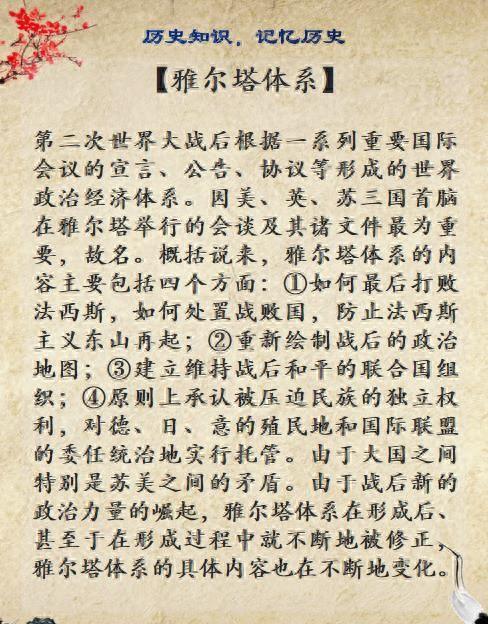 历史知识，记忆历史
【雅尔塔体系】
第二次世界大战后根据一系列重要国际
会议的宣言、公告、协议等形成的世界
政治经济体系。因美、英、苏三国首脑
在雅尔塔举行的会谈及其诸文件最为重
要，故名。概括说来，雅尔塔体系的内
容主要包括四个方面：①如何最后打败
法西斯，如何处置战败国，防止法西斯
主义东山再起；②重新绘制战后的政治
地图；③建立维持战后和平的联合国组
织；④原则上承认被压迫民族的独立权
利，对德、日、意的殖民地和国际联盟
的委任统治地实行托管。由于大国之间
特别是苏美之间的矛盾。由于战后新的
政治力量的崛起，雅尔塔体系在形成后、
甚至于在形成过程中就不断地被修正，
雅尔塔体系的具体内容也在不断地变化。